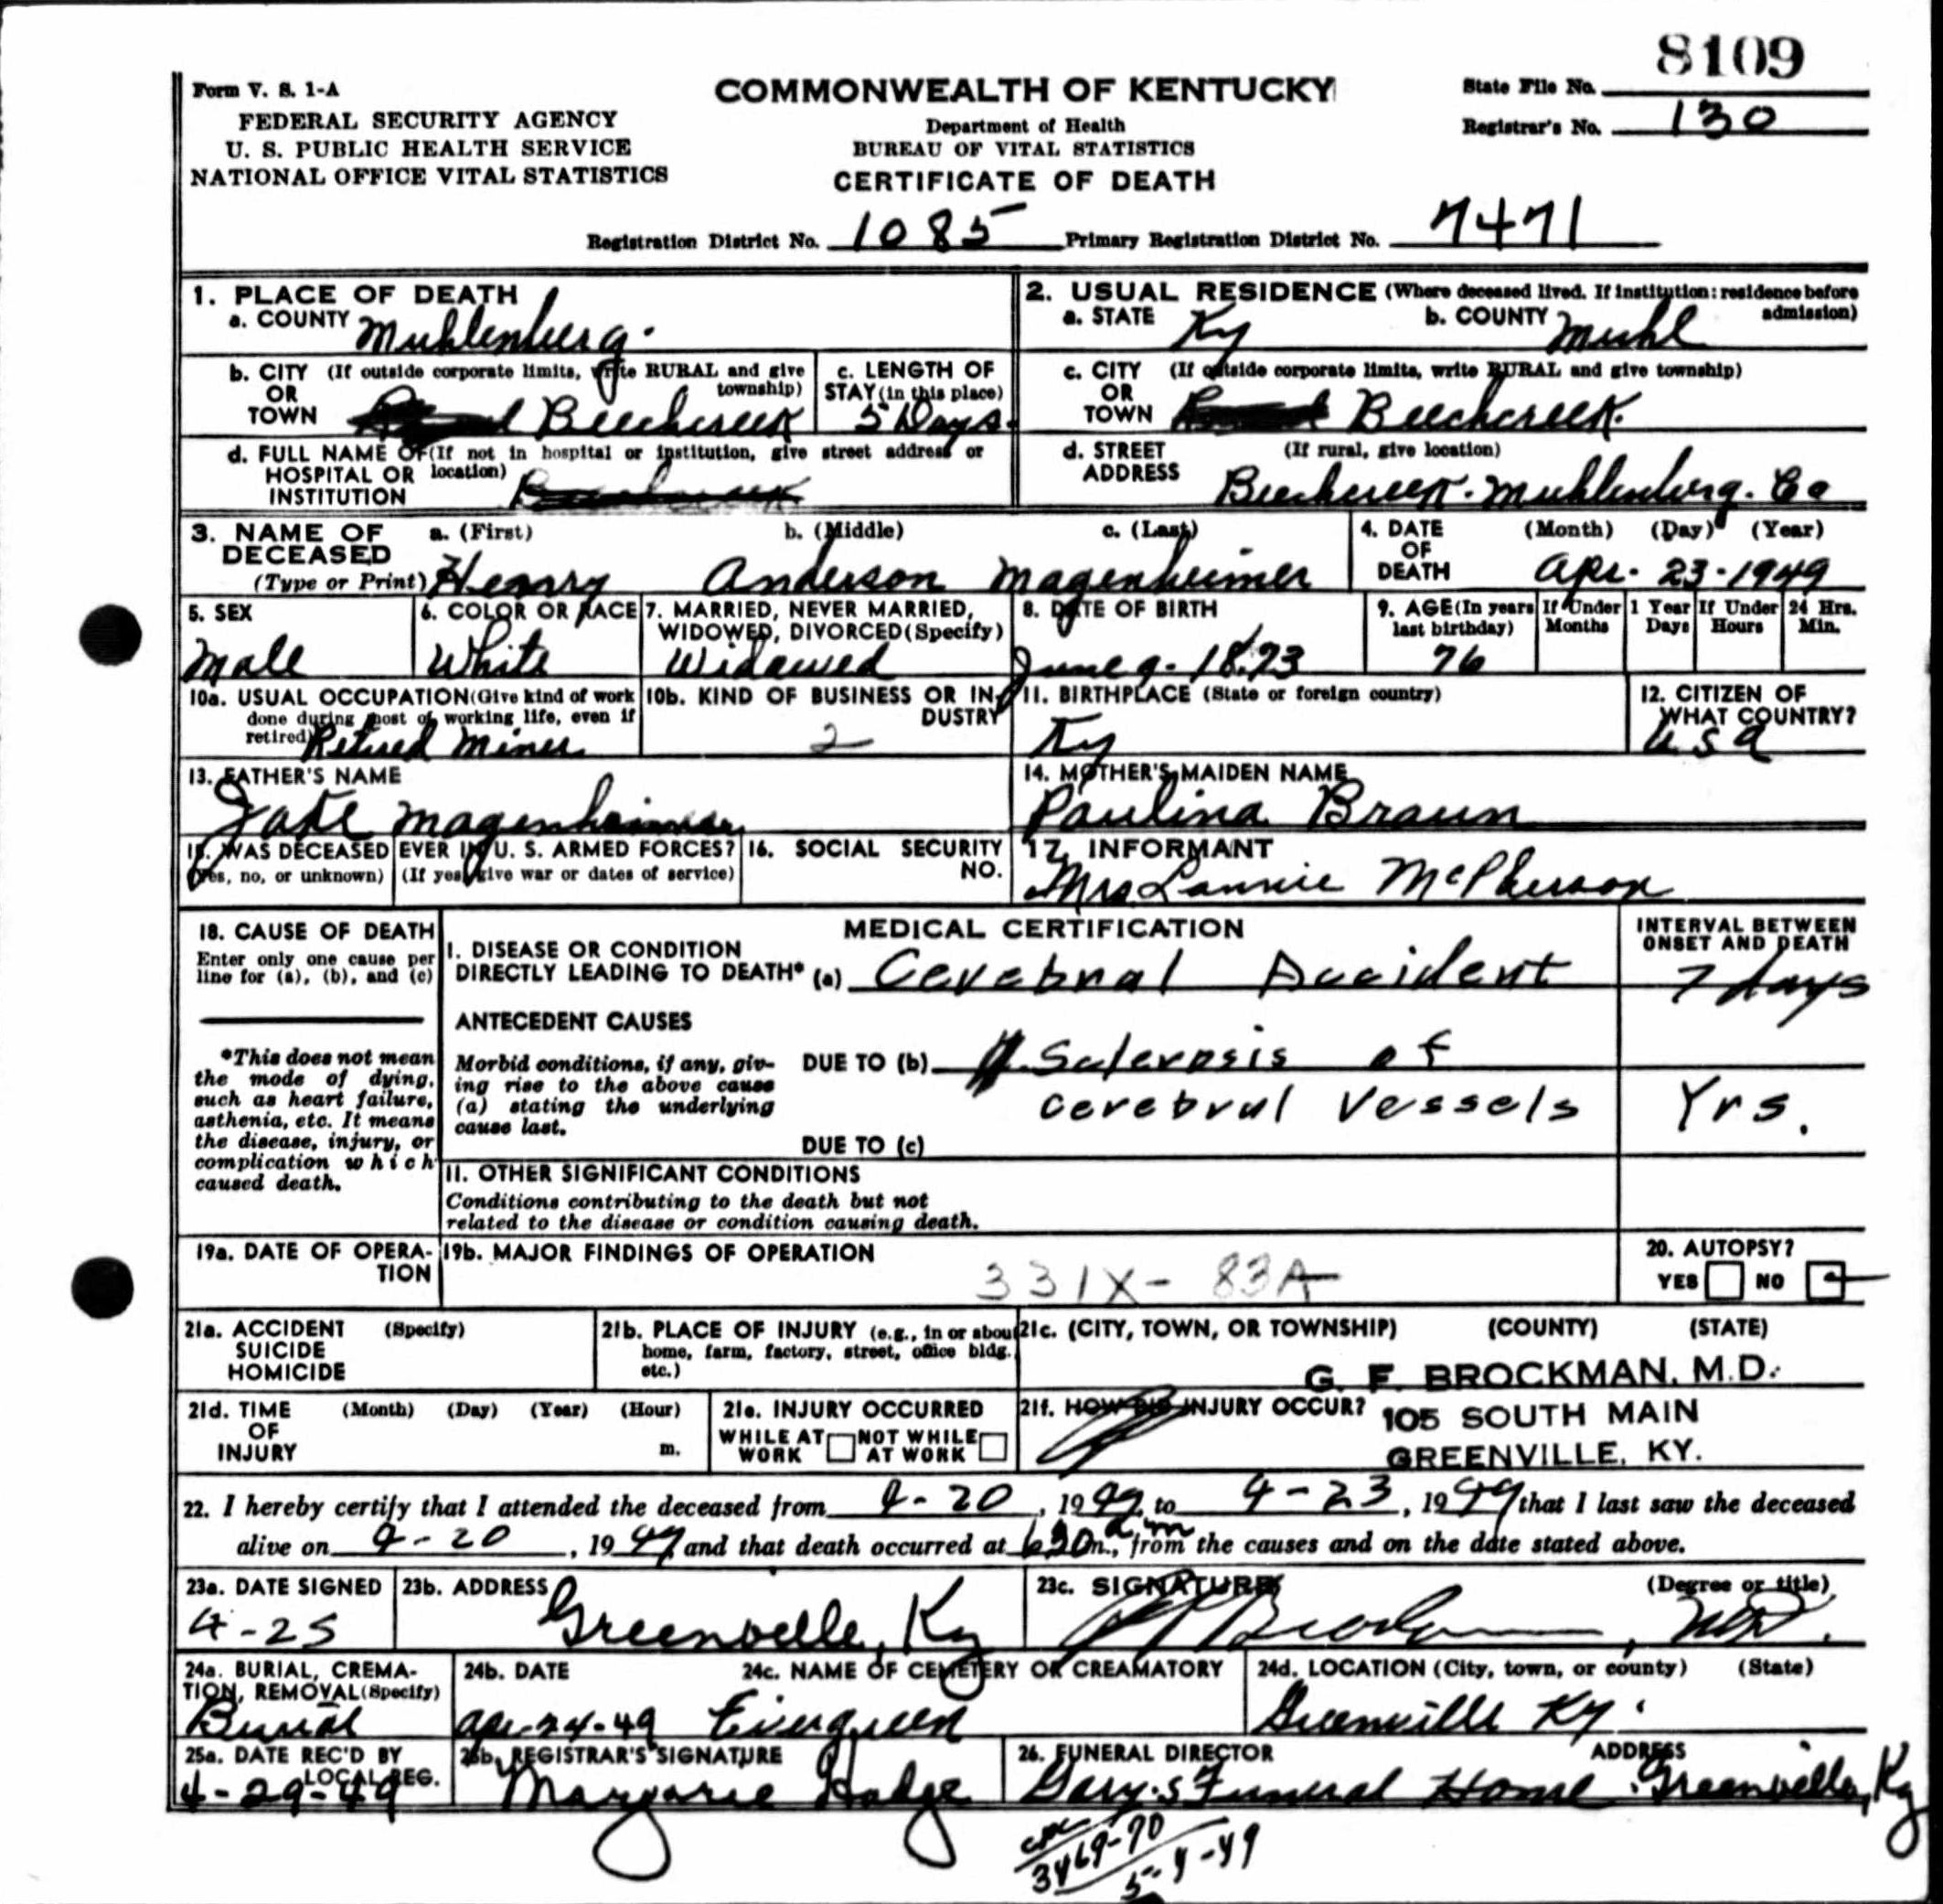 8109
Form V. S. 1-A
COMMONWEALTH OF KENTUCKY
State File No.
FEDERAL SECURITY AGENCY
Department of Health
Registrar's No. 130
U. S. PUBLIC HEALTH SERVICE
BUREAU OF VITAL STATISTICS
NATIONAL OFFICE VITAL STATISTICS
CERTIFICATE OF DEATH
Registration District No. 1085 Primary Registration District No. 7471
1. PLACE OF DEATH
a. COUNTY Muhlenberg.
2. USUAL RESIDENCE (Where deceased lived. If institution: residence before admission)
a. STATE Ky b. COUNTY Muhl
b. CITY (If outside corporate limits, write RURAL and give township)
OR
TOWN Beechcreek
c. LENGTH OF
STAY (in this place)
5 Days.
c. CITY (If outside corporate limits, write RURAL and give township)
OR
TOWN Beechcreek.
d. FULL NAME OF (If not in hospital or institution, give street address or location)
HOSPITAL OR
INSTITUTION
d. STREET (If rural, give location)
ADDRESS Beechcreek. Muhlenberg. Co
3. NAME OF DECEASED a. (First) b. (Middle) c. (Last)
(Type or Print) Henry Anderson Magenheimer
4. DATE OF DEATH (Month) (Day) (Year)
Apr. 23-1949
5. SEX
Male
6. COLOR OR RACE
White
7. MARRIED, NEVER MARRIED,
WIDOWED, DIVORCED (Specify)
Widowed
8. DATE OF BIRTH
June 9-1873
9. AGE (In years last birthday)
76
If Under 1 Year
Months Days
If Under 24 Hrs.
Hours Min.
10a. USUAL OCCUPATION (Give kind of work
done during most of working life, even if
retired) Retired Miner
10b. KIND OF BUSINESS OR INDUSTRY
2
11. BIRTHPLACE (State or foreign country)
Ky
12. CITIZEN OF
WHAT COUNTRY?
USA
13. FATHER'S NAME
Jake Magenheimer
14. MOTHER'S MAIDEN NAME
Paulina Braun
15. WAS DECEASED EVER IN U. S. ARMED FORCES?
(Yes, no, or unknown) (If yes, give war or dates of service)
16. SOCIAL SECURITY
NO.
17. INFORMANT
Mrs Lannie McPherson
18. CAUSE OF DEATH
Enter only one cause per
line for (a), (b), and (c)
*This does not mean
the mode of dying,
such as heart failure,
asthenia, etc. It means
the disease, injury, or
complication which
caused death.
MEDICAL CERTIFICATION
INTERVAL BETWEEN
ONSET AND DEATH
I. DISEASE OR CONDITION
DIRECTLY LEADING TO DEATH* (a) Cerebral Accident
7 days
ANTECEDENT CAUSES
Morbid conditions, if any, giv-
ing rise to the above cause
(a) stating the underlying
cause last.
DUE TO (b) Sclerosis of
cerebral Vessels
Yrs.
DUE TO (c)
II. OTHER SIGNIFICANT CONDITIONS
Conditions contributing to the death but not
related to the disease or condition causing death.
19a. DATE OF OPERA-
TION
19b. MAJOR FINDINGS OF OPERATION
331X- 83A
20. AUTOPSY?
YES NO
21a. ACCIDENT (Specify)
SUICIDE
HOMICIDE
21b. PLACE OF INJURY (e.g., in or about
home, farm, factory, street, office bldg.
etc.)
21c. (CITY, TOWN, OR TOWNSHIP) (COUNTY) (STATE)
G. F. BROCKMAN, M.D.
21d. TIME (Month) (Day) (Year) (Hour)
OF
INJURY m.
21e. INJURY OCCURRED
WHILE AT WORK NOT WHILE AT WORK
21f. HOW DID INJURY OCCUR?
105 SOUTH MAIN
GREENVILLE, KY.
22. I hereby certify that I attended the deceased from 4-20, 1949, to 4-23, 1949 that I last saw the deceased
alive on 4-20, 1949, and that death occurred at 630 am m., from the causes and on the date stated above.
23a. DATE SIGNED
4-25
23b. ADDRESS
Greenville, Ky
23c. SIGNATURE (Degree or title)
Brockman, MD.
24a. BURIAL, CREMA-
TION, REMOVAL (Specify)
Burial
24b. DATE
Apr-24-49
24c. NAME OF CEMETERY OR CREAMATORY
Evergreen
24d. LOCATION (City, town, or county) (State)
Greenville Ky.
25a. DATE REC'D BY
LOCAL REG.
4-29-49
25b. REGISTRAR'S SIGNATURE
Marjorie Hodge
26. FUNERAL DIRECTOR ADDRESS
Gary's Funeral Home. Greenville, Ky
3469-70
5-4-49